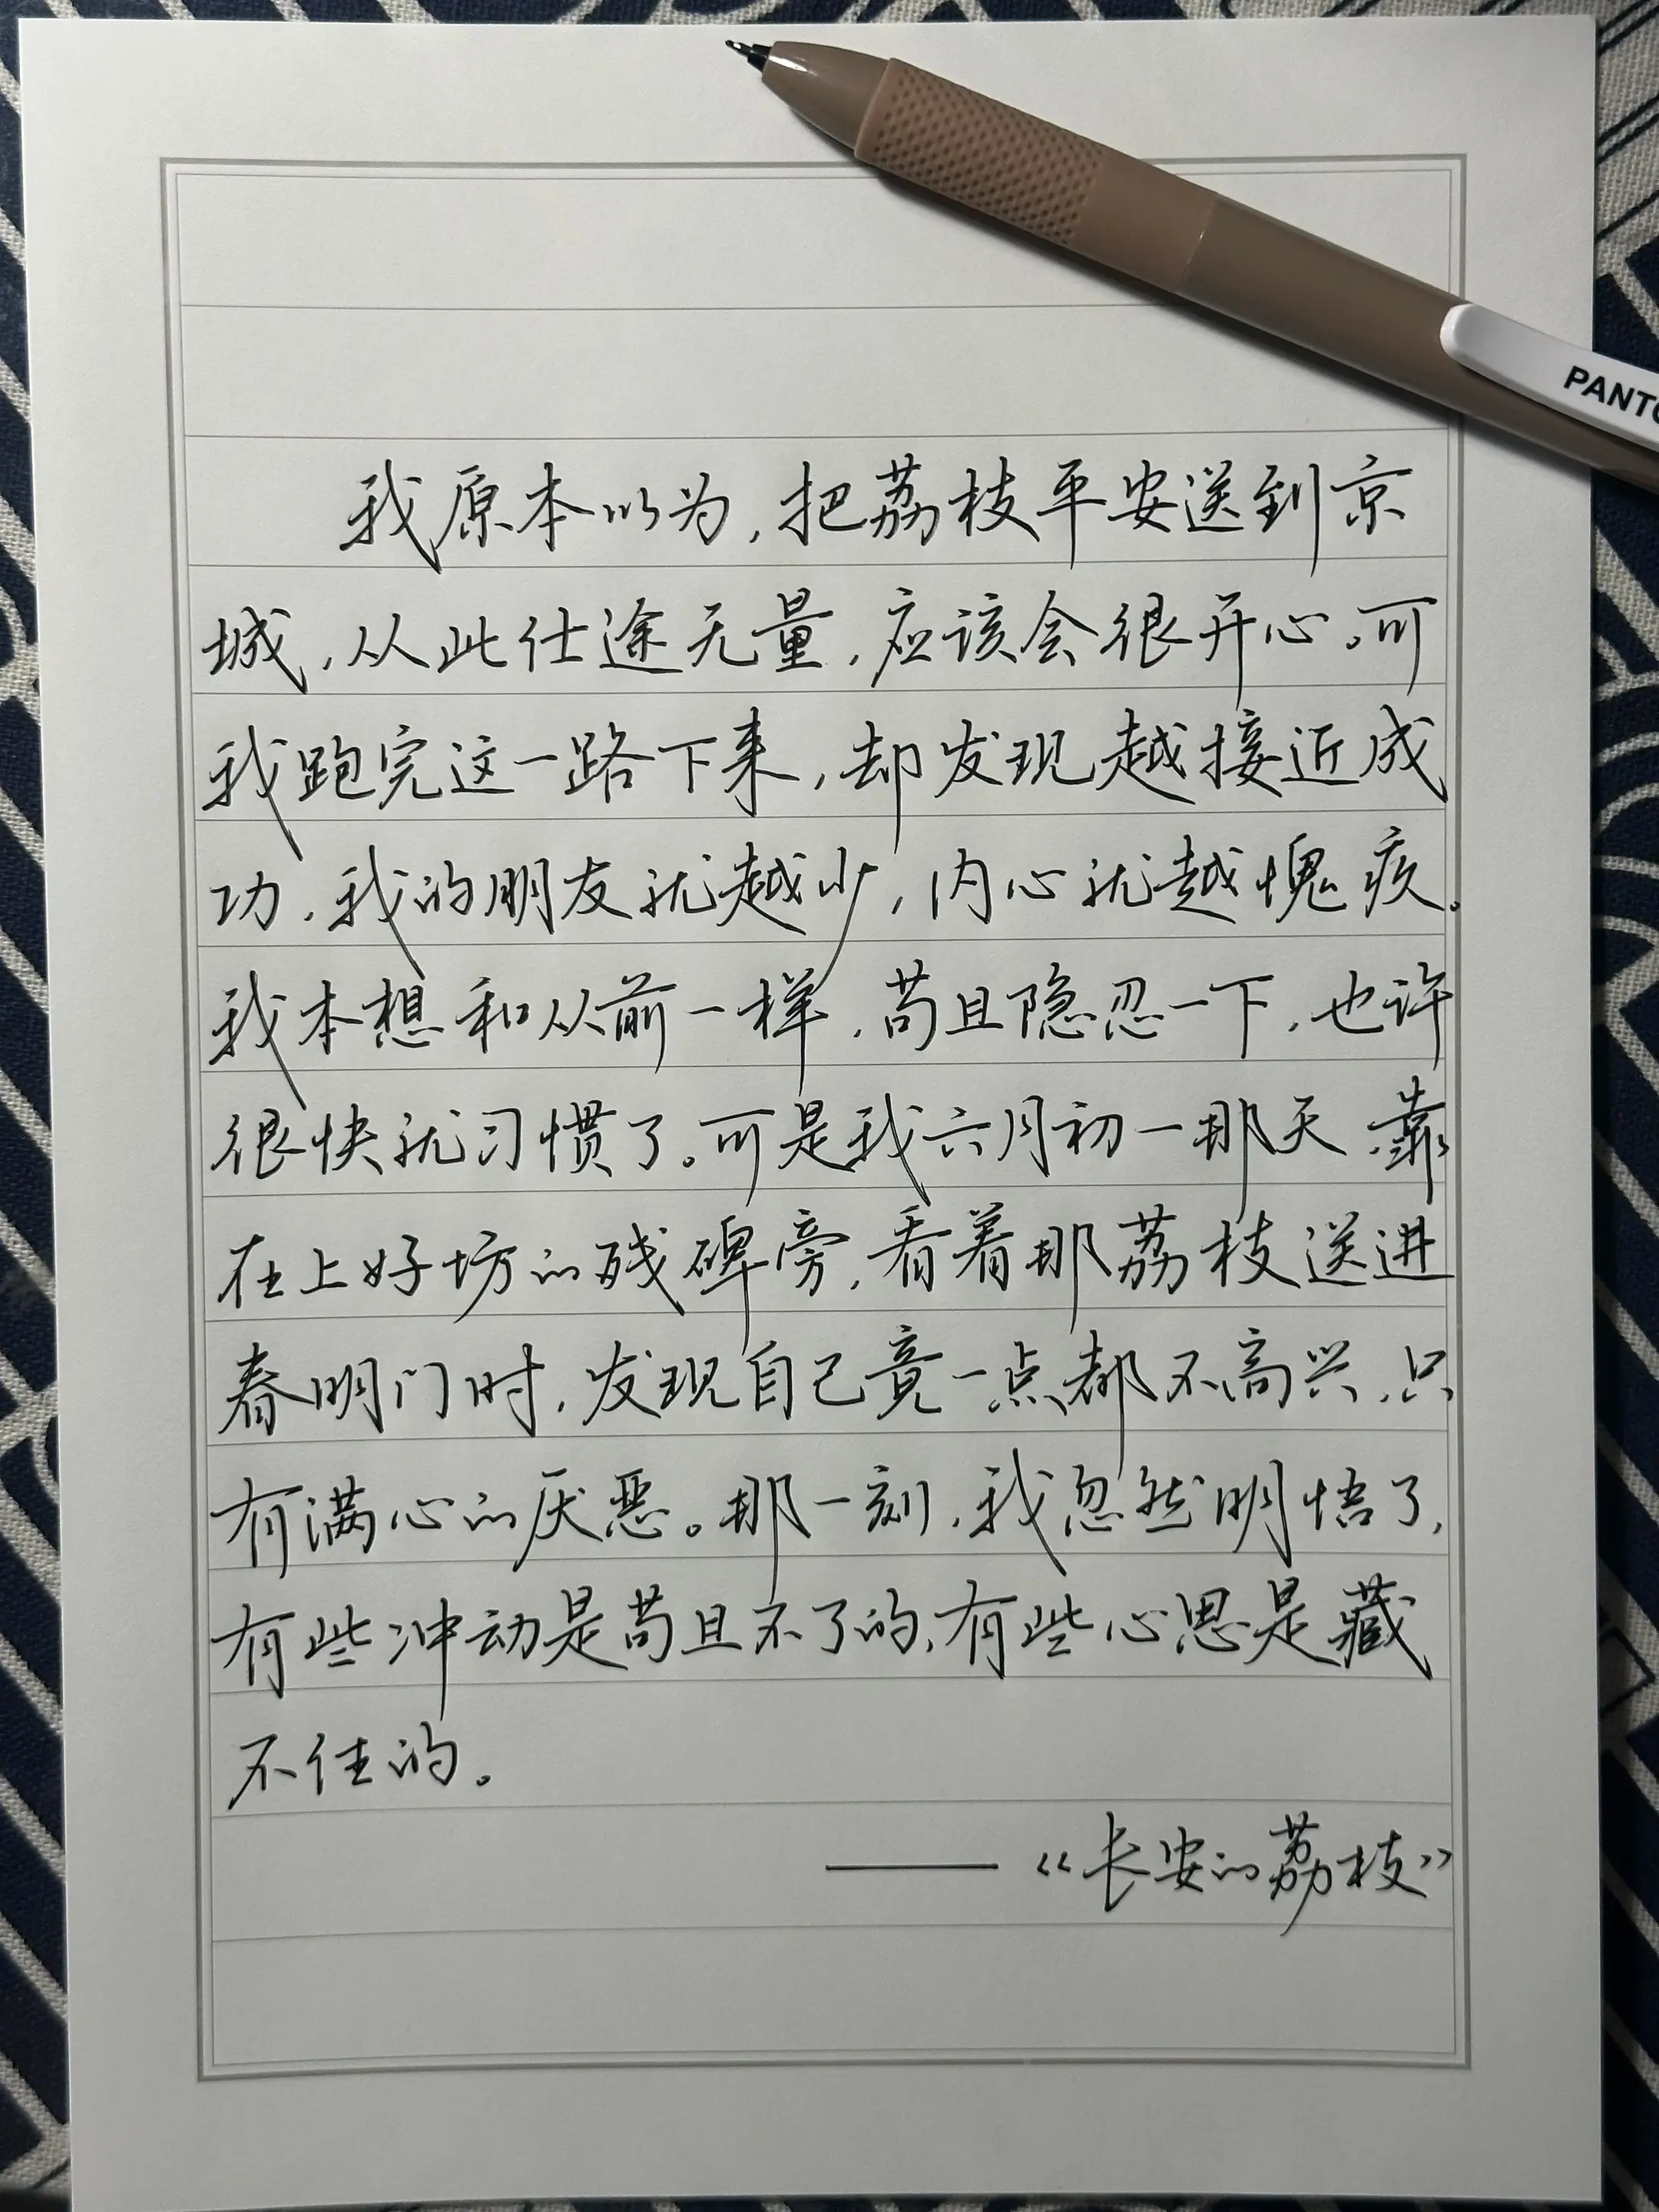 PANTO
我原本以为,把荔枝平安送到京
城,从此仕途无量,应该会很开心。可
我跑完这一路下来,却发现越接近成
功,我的朋友就越少,内心就越愧疚。
我本想和从前一样,苟且隐忍一下,也许
很快就习惯了。可是我六月初一那天,靠
在上好坊的残碑旁,看着那荔枝送进
春明门时,发现自己竟一点都不高兴,只
有满心的厌恶。那一刻,我忽然明悟了,
有些冲动是苟且不了的,有些心思是藏
不住的。
——《长安的荔枝》